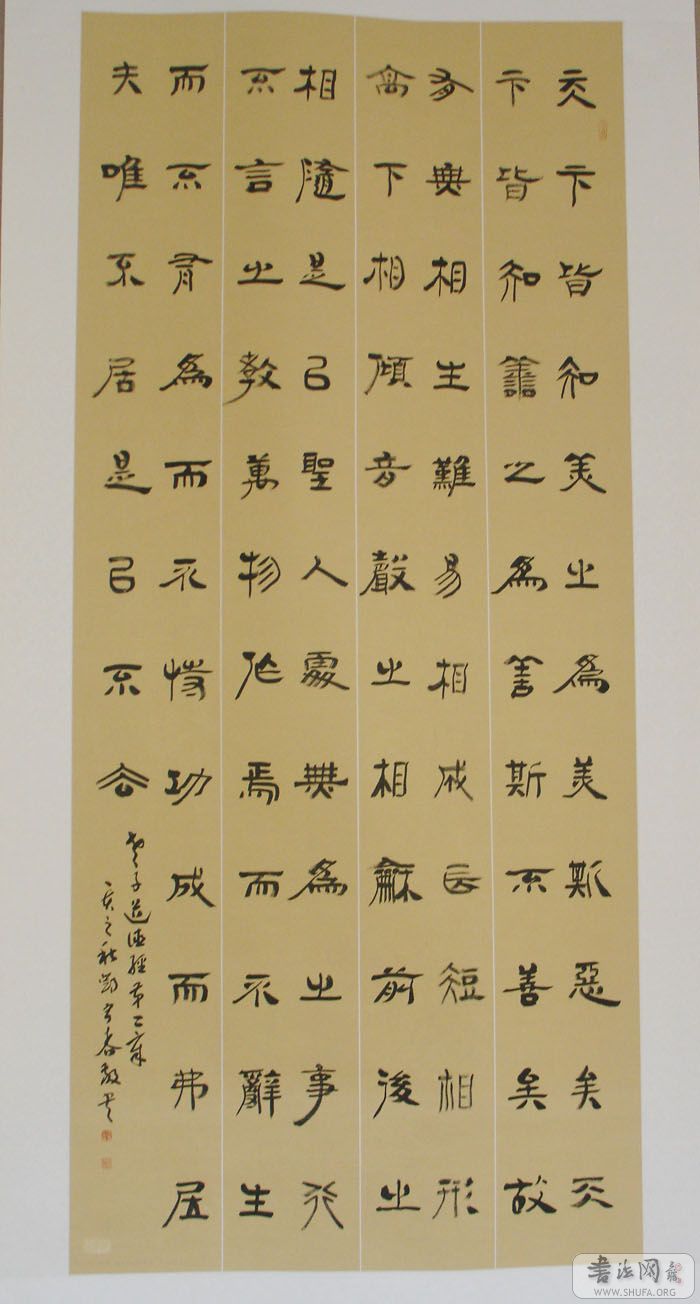 天下皆知美之為美斯惡矣天
下皆知善之為善斯不善矣故
有無相生難易相成長短相形
高下相傾音聲之相龢前後之
相隨是以聖人處無為之事行
不言之教萬物作焉而不辭生
而不有為而不恃功成而弗居
夫唯不居是以不去
老子道德經第二章
亥之秋春敬書
书法网
WWW.SHUFA.ORG